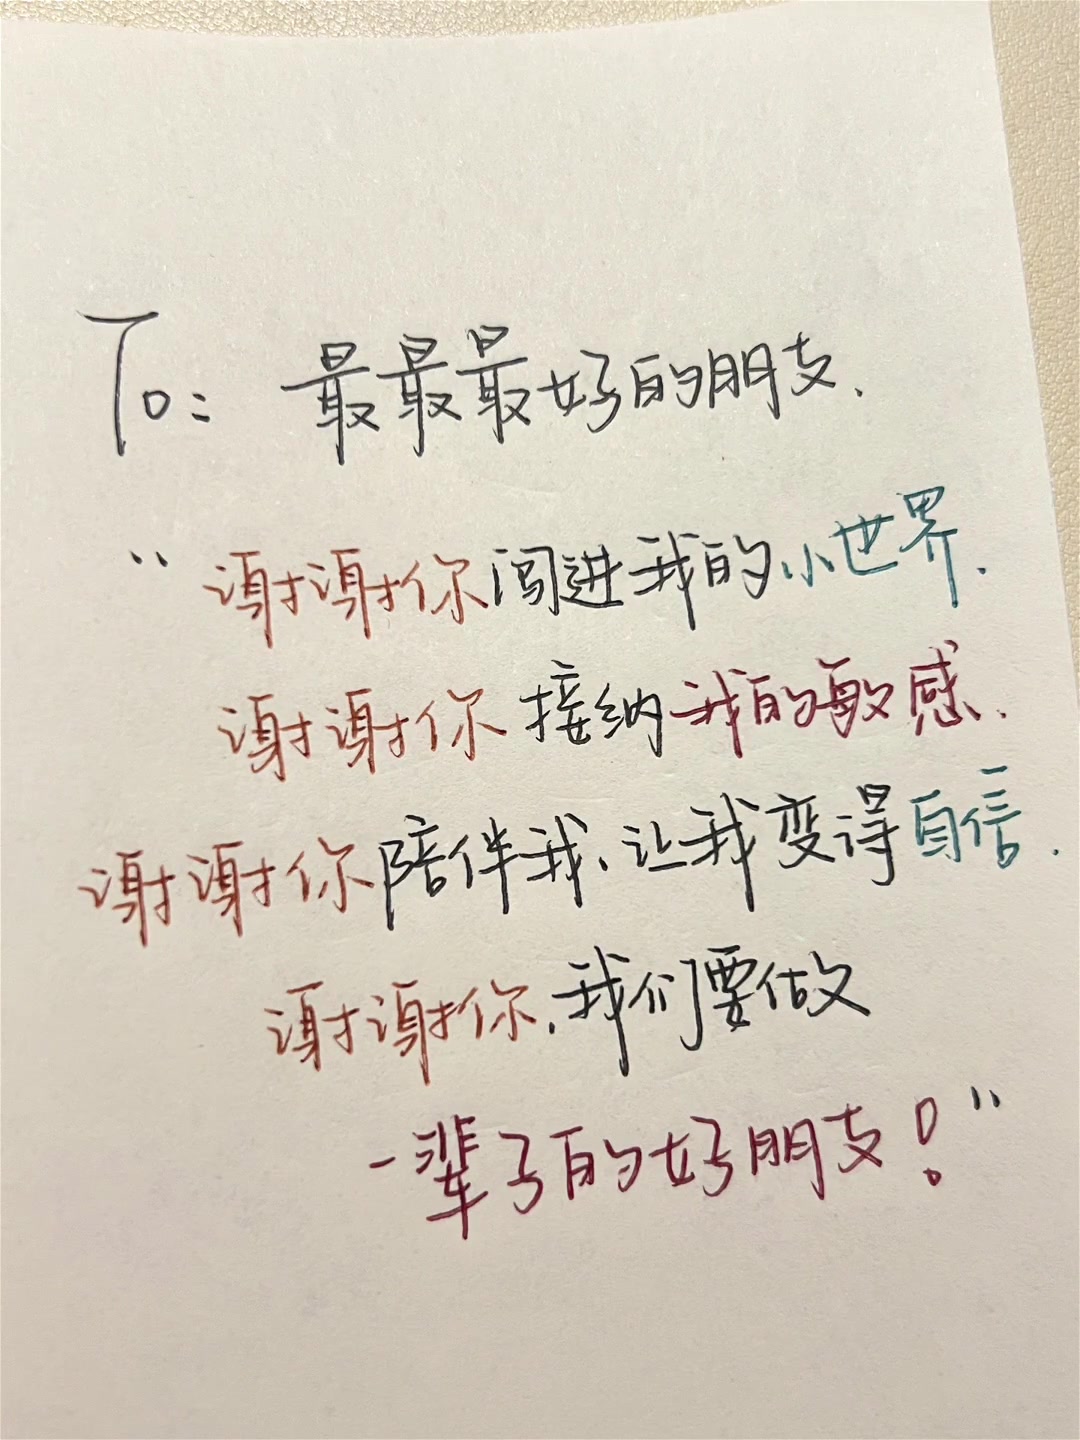 To: 最最最好的朋友.
“谢谢你闯进我的小世界.
谢谢你接纳我的敏感.
谢谢你陪伴我、让我变得自信.
谢谢你.我们要做
一辈子的好朋友!”